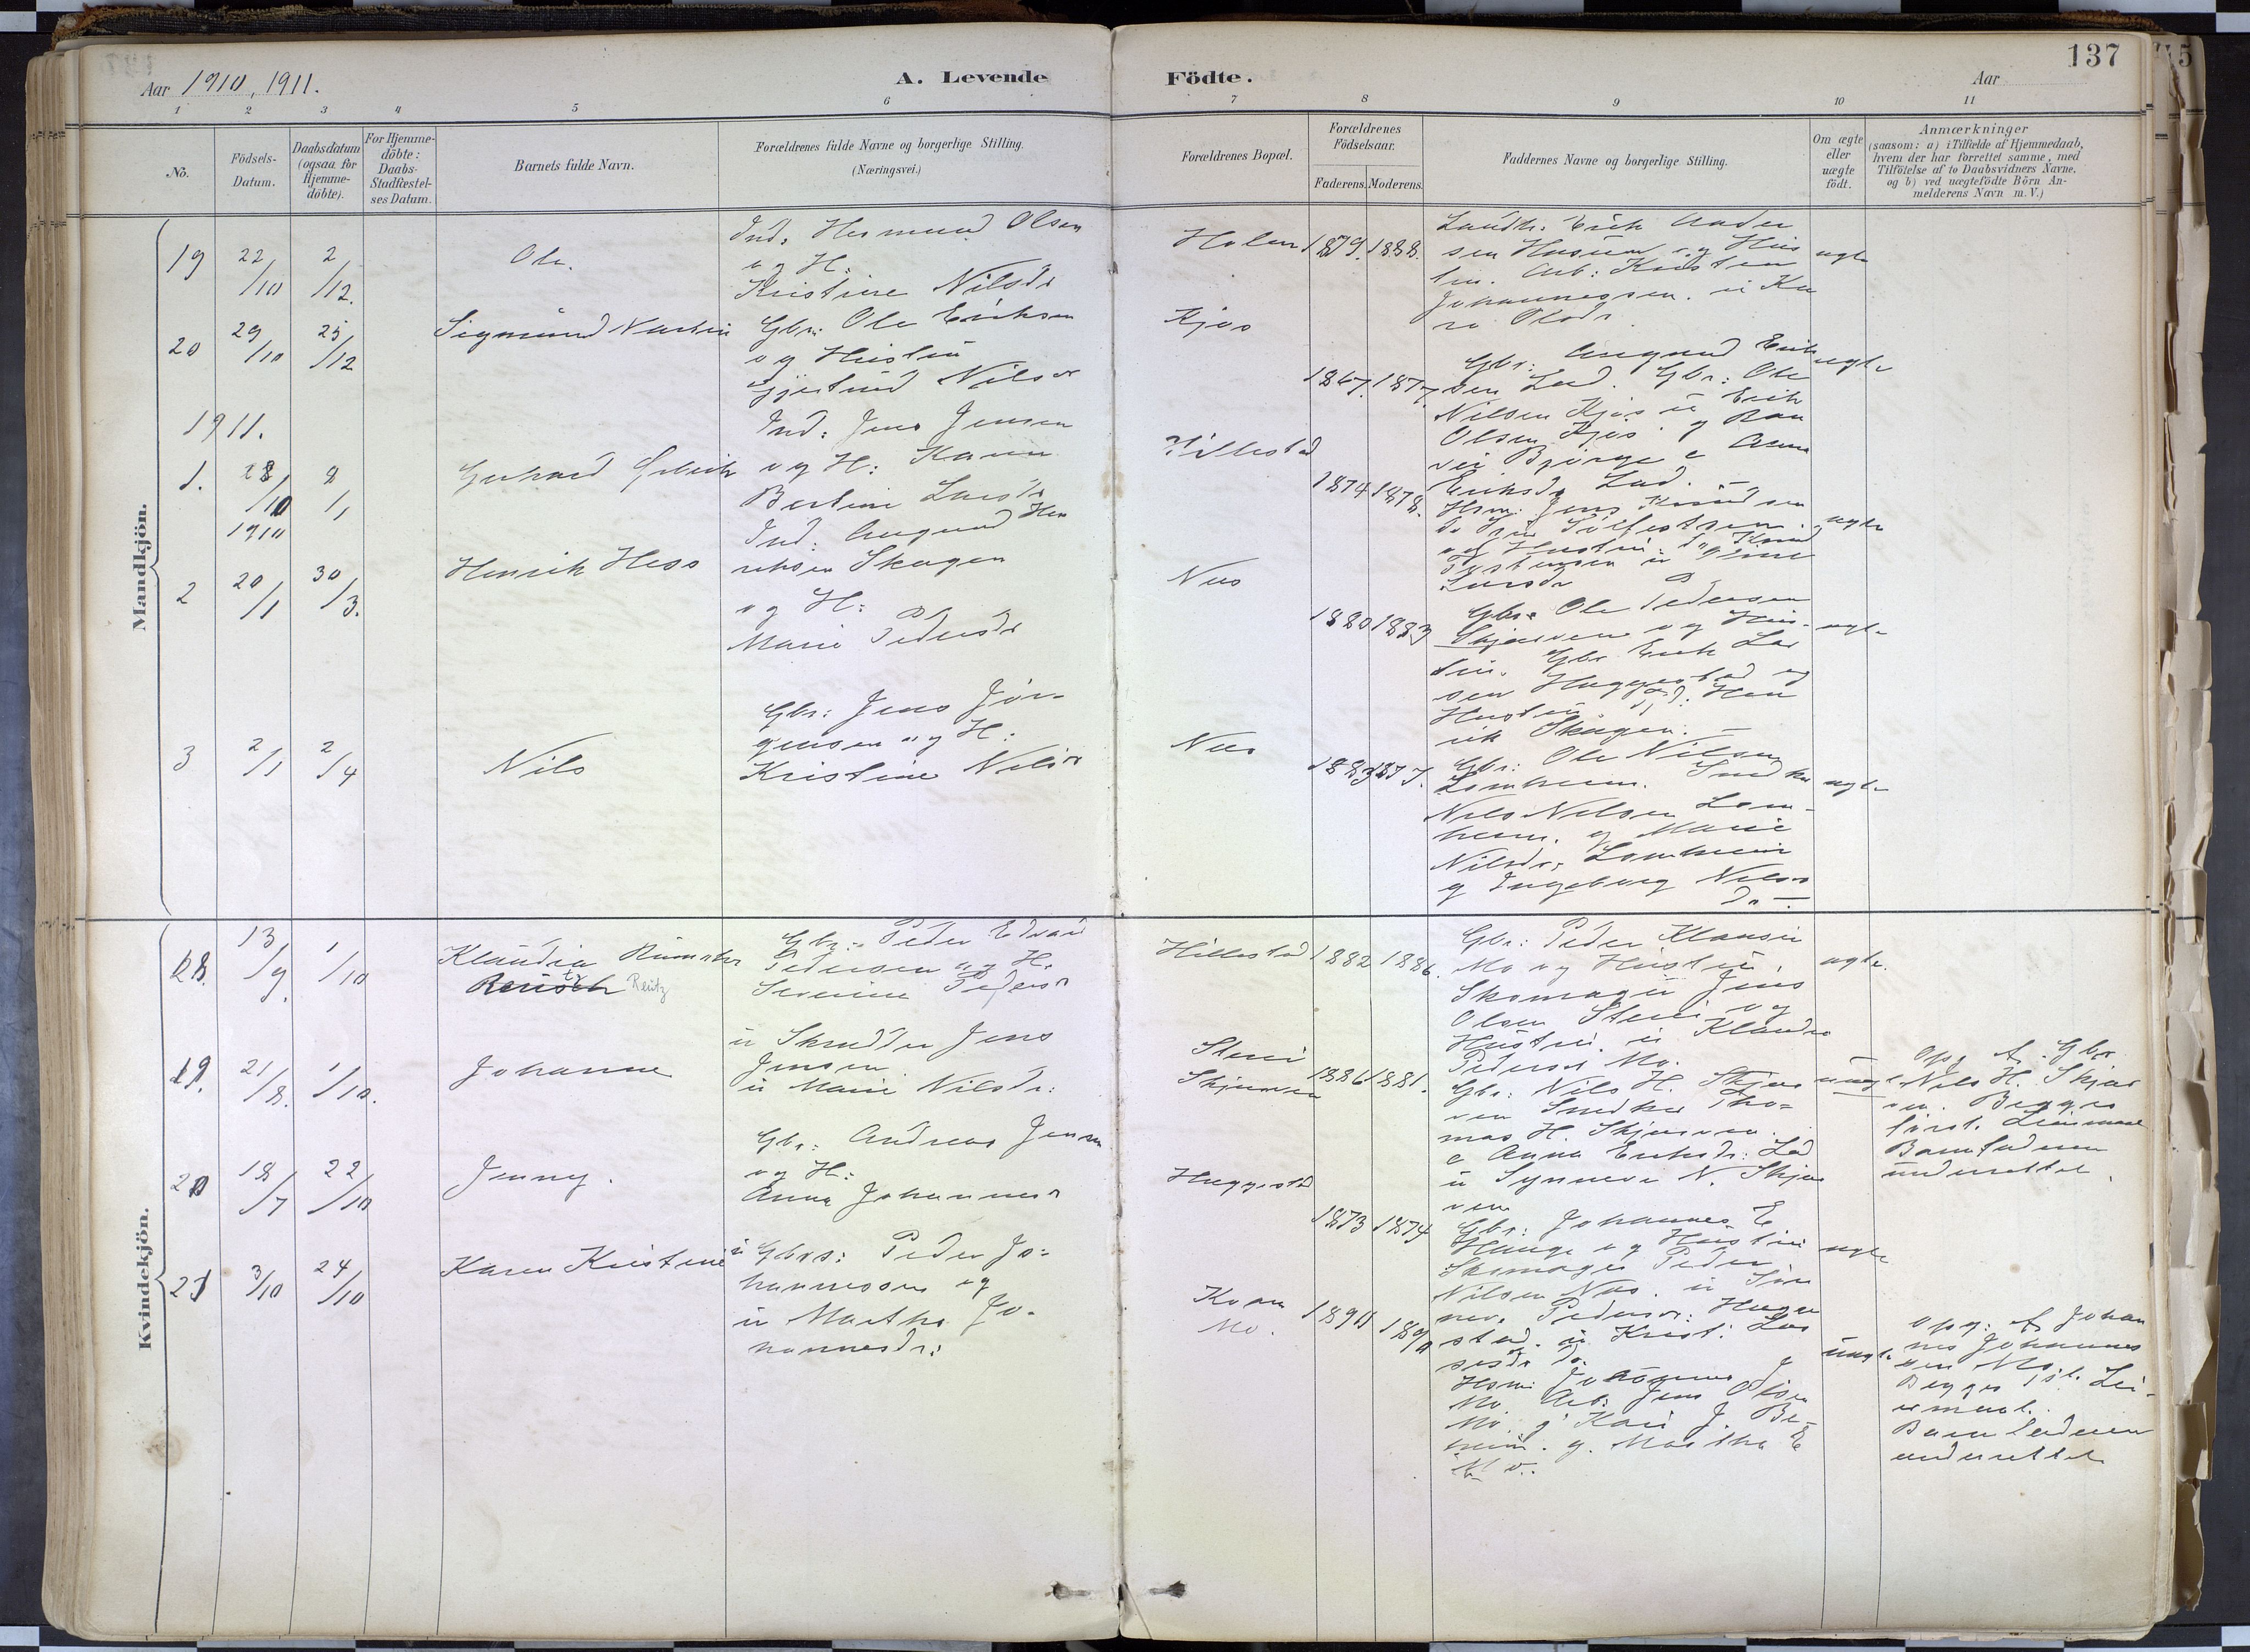 137
Aar 1910, 1911.
A. Levende Födte.
Aar
1 2 3 4 5 6 7 8 9 10 11
No.
Födsels-
Datum.
Daabsdatum
(ogsaa for
Hjemme-
döbte).
For Hjemme-
döbte:
Daabs-
Stadfæstel-
ses Datum.
Barnets fulde Navn.
Forældrenes fulde Navne og borgerlige Stilling.
(Næringsvei.)
Forældrenes Bopæl.
Forældrenes
Födselsaar.
Faderens. Moderens.
Faddernes Navne og borgerlige Stilling.
Om ægte
eller
uægte
födt.
Anmærkninger
(saasom: a) i Tilfælde af Hjemmedaab,
hvem der har forrettet samme, med
Tilföielse af to Daabsvidners Navne,
og b) ved uægtefödte Börn An-
melderens Navn m. V.)
Mandkjön.
19 22/10 2/12.
Ole.
Ind: Hermund Olsen
og H:
Kristine Nilsdr
Holen 1879. 1888.
Landh. Erik Ander
sen Husum og Hus
tru. Arb: Kristen
Johannessen. u Ka
ri Olsdr.
ægte
20 29/10 25/12
Sigmund Martin
Gbr: Ole Eriksen
og Hustru
Gjertrud Nilsdr
Kjos
1867. 1877.
Gbr: Amund Erik
sen Lad. Gbr: Ole
Nilsen Kjos u Erik
Olsen Kjos g Ran
vei Bjørge e Anna
Eriksdr Lad.
ægte
1911.
1. 28/10 1910 2/1
Gerhard
Ind: Jens Jensen
og H: Karen
Bertine Larsdr
Hillestad
1874 1878.
Hsm: Jens Knudsen
og Hustru.
Larsdr
ægte
2 20/1 30/3.
Henrik Hess
Ind: Amund Hen
riksen Skagen
og H:
Marie Pedersdr
Nus
1880 1883
Gbr: Ole Pedersen
Skjerven og Hus-
tru. Gbr Erik Lar
sen Huggestad og
Hustru Ind: Hen
rik Skagen. —
ægte
3 2/1 2/4
Nils
Gbr: Jens Jør-
gensen og H:
Kristine Nilsdr
Nus
1883 1877.
Gbr: Ole Nilsen
Lomheim. Snedker
Nils Nilsen Lom-
heim. g Marie
Nilsdr. Lomheim
g Ingeborg Nilsdr
Do —.
ægte
Kvindekjön.
18. 13/9. 1/10
Klaudia
Reusch Reutz
Gbr: Peder Edvard
Pedersen og H.
Severine Pedersdr
Hillestad 1882 1886.
Gbr: Peder Klausen
Mo og Hustru.
Skomager Jens
Olsen Steni og
Hustru. u Klaudia
Pedersdr Mo.
ægte.
19. 21/8. 1/10.
Johanne
u Skrædder Jens
Jensen.
u Marie Nilsdr:
Steni
Skjerven
1886 1881.
Gbr: Nils H. Skjer
ven Snedker Tho=
mas H. Skjerven.
e Anna Eriksdr: Lad
u Synneve N. Skjer
ven
uægte
Opg. af Gbr
Nils H. Skjer
ven. Begges
først. Leiermaal
Barnefaderen
underrettet.
20 18/7 22/10
Jenny.
Gbr: Andreas Jensen
og H:
Anna Johannesdr
Huggestad
1873 1874
Gbr: Johannes E
Hauge og Hustru
Skomager Peder
Nilsen Nus. u Syn
nev. Pedersdr: Hugge
stad. u Krist: Lar
sesdr do.
ægte
21 3/10 24/10
Karen Kristine
u Gbrs: Peder Jo=
hannessen og
u Martha Jo-
hannesdr:
Kvam
Mo.
1890 1890
Hsm: Johannes Olsen
Mo. Arb: Jens
Mo. g Kari J. Be-
heim. g. Martha E
Mo.
uægte
opg: af Johan
nes Johannes
sen Mo.
Begges 1st. Lei-
ermaal.
Barnefaderen
underrettet